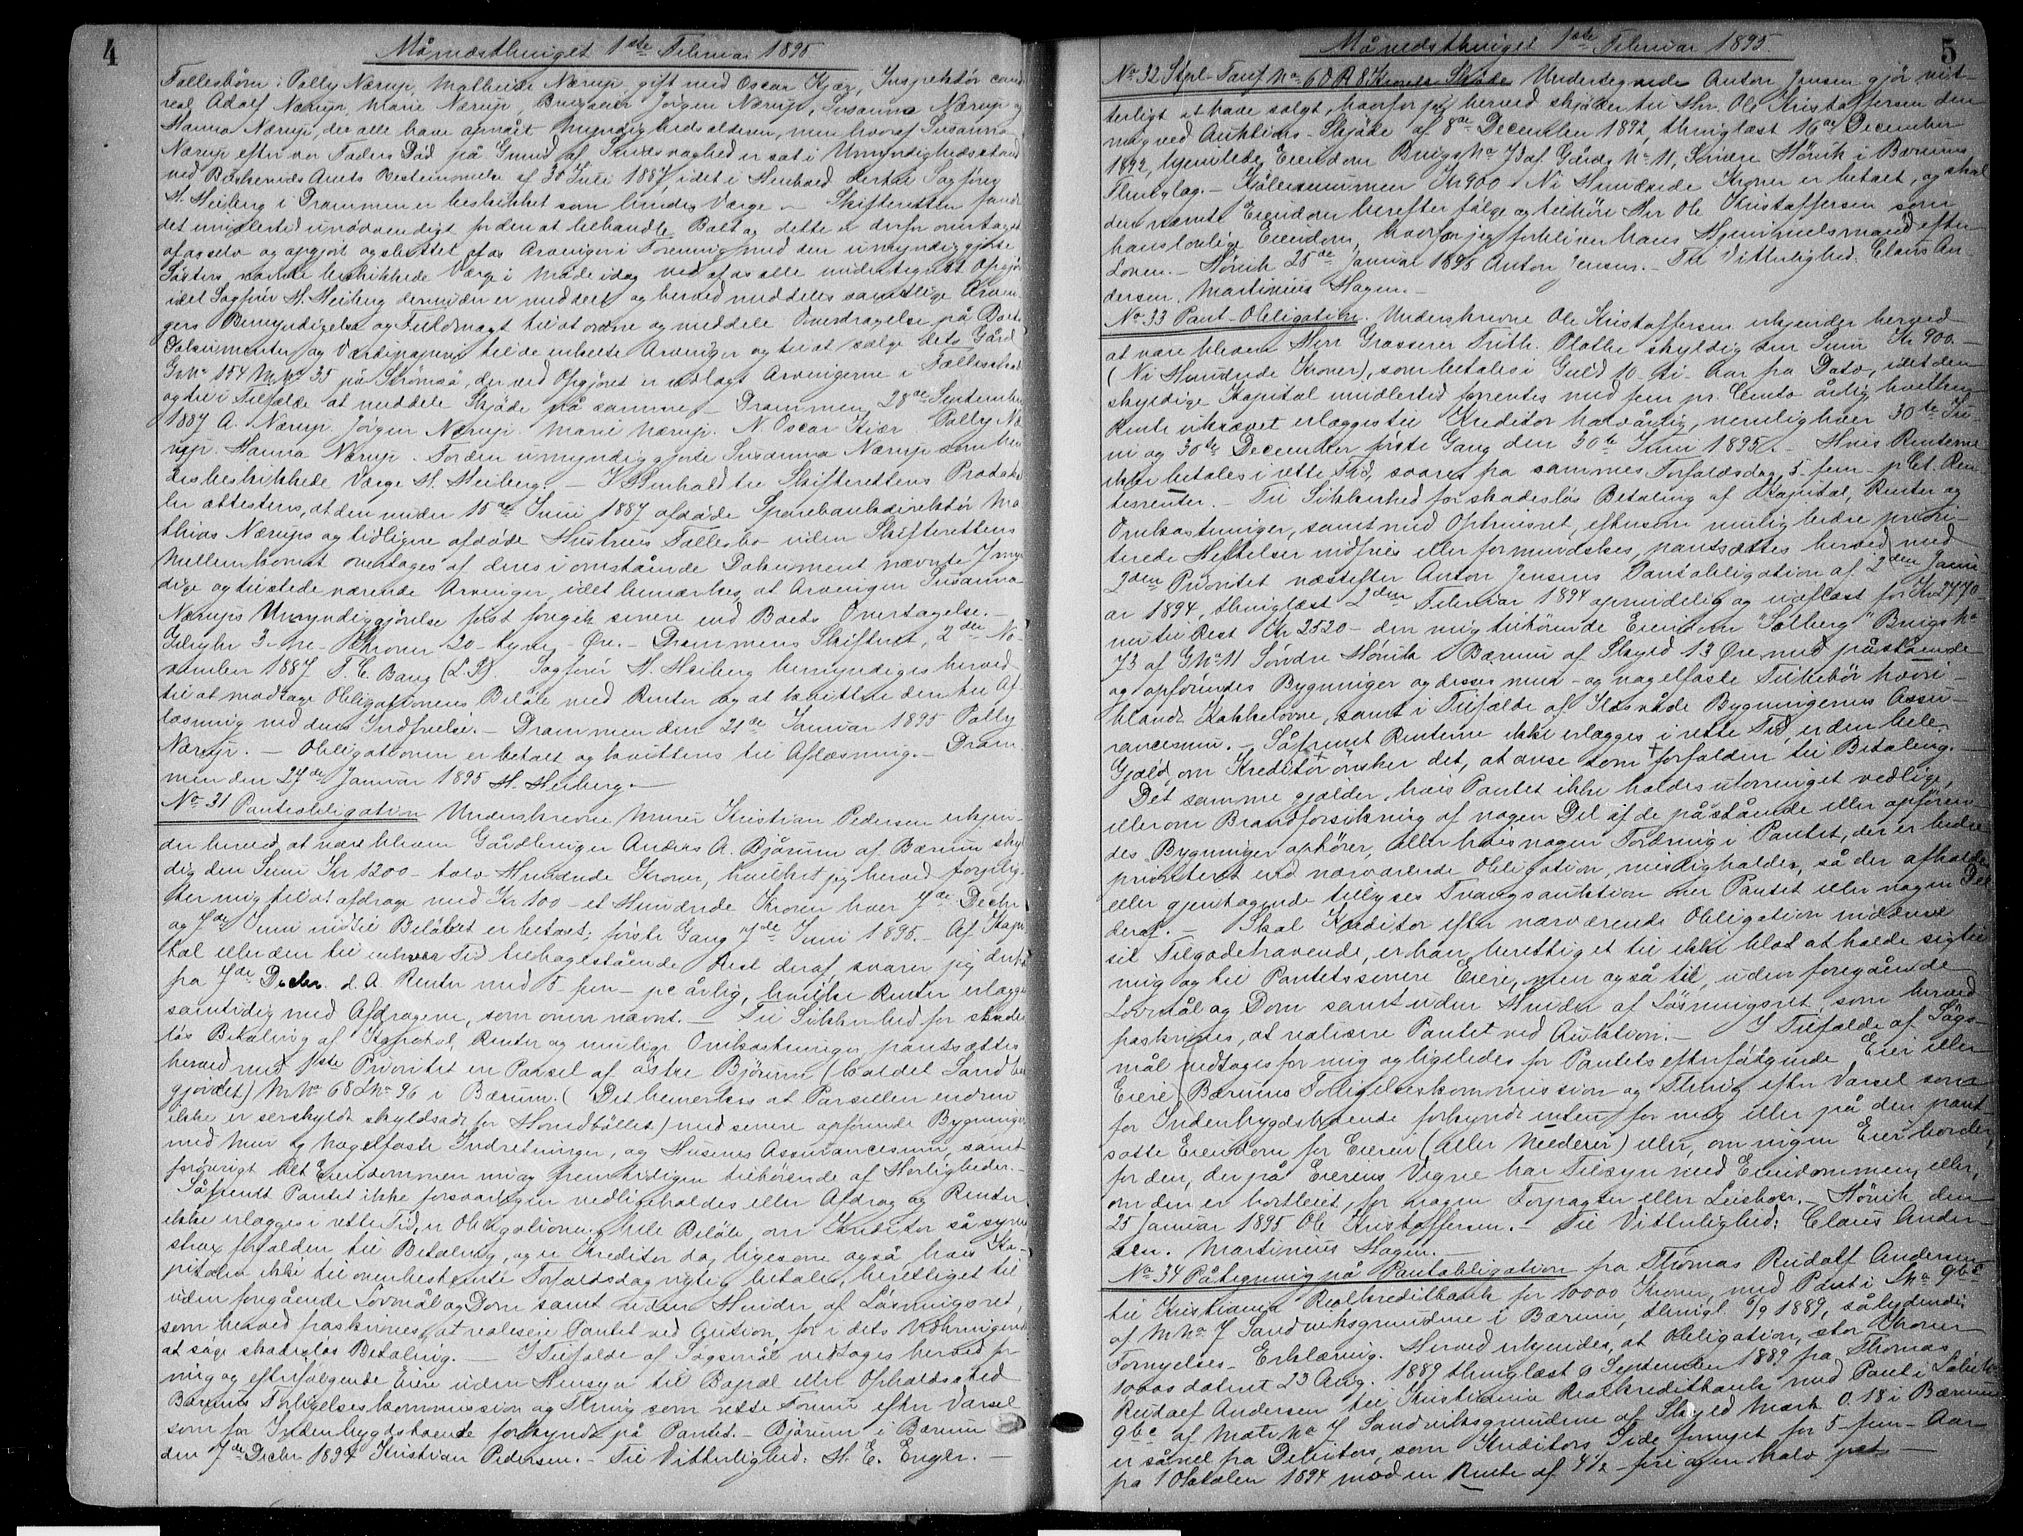 4
Månedsthinget 1ste Februar 1895
Fællesbörn: Polly Nærup, Mathilde Nærup gift med Oscar Kjær, Inspektör cand
real. Adolf Nærup, Marie Nærup, Jörgen Nærup, Susanna Nærup og
Hanna Nærup, der alle have opnået Myndighedsalderen, men hvoraf Susanna
Nærup efter vor Faders Död på Grund af Sindssvaghed er sat i Umyndighedsstand
ved Buskeruds Amts Bestemmelse af 30 Juli 1887, idet i Henhold dertil Sagförer
H. Heiberg i Drammen er beskikket som hendes Værge. — Skifteretten fandt
det imidlertid unödvendigt for den at behandle Boet og dette er derfor overtaget
af os selv og opgjort og sluttet af os Arvinger i Forening med den umyndiggjorte
Sösters nævnte beskikkede Værge i Möde idag ved af os alle undertegnet Opgjör
idet Sagförer H. Heiberg derunder er meddelt og herved meddeles samtlige Arvin-
gers Bemyndigelse og Fuldmagt til at ordne og meddele Overdragelse på Boets
Dokumenter og Værdipapirer til de enkelte Arvinger og til at sælge bets Gård
GNo 154 MNo 35 på Strömsö, der ved Opgjöret er udlagt Arvingerne i Fællesskab
og til i Tilfælde at meddele Skjöde på samme. — Drammen 28de September
1887 A. Nærup. Jörgen Nærup. Marie Nærup. N. Oscar Kjær. Polly Næ-
rup. Hanna Nærup. For den umyndiggjorte Susanna Nærup som hen-
des beskikkede Værge H. Heiberg. — I Henhold til Skifterettens Protokol
ler attesteres, at den under 15de Juni 1887 afdöde Sparebankdirektör Ma
thias Nærups og tidligere afdöde Hustrues Fællesbo uden Skifterettens
Mellemkomst overtages af deres i omstående Dokument nævnte 7 myn
dige og tilstedeværende Arvinger, idet bemærkes, at Arvingen Susanna
Nærups Umyndiggjörelse först foregik senere end Boets Overtagelse. —
Gebyhr 3 -tre- Kroner 20 -tyve- Öre. — Drammens Skifteret, 2den No-
vember 1887 P. C. Bang (L.S). Sagförer H. Heiberg bemyndiges herved
til at modtage Obligationens Belöb med Renter og at kvittere den til Af-
læsning ved dens Indfrielse. — Drammen den 21de Januar 1895 Polly
Nærup. — Obligationen er betalt og kvitteres til Aflæsning. — Dram
men den 24de Januar 1895 H. Heiberg. —
No 31 Panteobligation Underskrevne Murer Kristian Pedersen erkjen-
der herved, at være bleven Gårdbruger Anders A. Björum af Bærum skyl
dig den Sum Kr 1200 - tolv Hundrede Kroner, hvilket jeg herved forplig-
ter mig til at afdrage med Kr 100 - et Hundrede Kroner hver 7de Decbr
og 7de Juni indtil Belöbet er betalt; förste Gang 7de Juni 1895. — Af Kapi
tal eller den til enhver Tid tilbagestående Rest deraf svarer jeg derhos
fra 7de Decbr. d. A Renter med 5 - fem - pc årlig, hvilke Renter erlægges
samtidig med Afdragene, som oven nævnt. — Til Sikkerhed for skades
lös Betaling af Kapital, Renter og mulige Omkostninger pantsættes
herved med 1ste Prioritet en Parsel af östre Björum (kaldet Sand
gjordet) MNo 68 LNo 96 i Bærum. (Det bemærkes at Parsellen endnu
ikke er særskyldt skyldsat fra Hovedböllet) med senere opförende Bygninger
med Mur og Nagelfaste Indretninger, og Husenes Assurancesum, samt
forövrigt alt Eiendommen nu og fremtidigen tilhörende af Herligheder. —
Såfremt Pantet ikke forsvarligen vedligeholdes eller Afdrag og Renter
ikke erlægges i rette Tid, er Obligationens hele Belöb om Kreditor så synes
strax forfalden til Betaling, og er Kreditor da, ligesom også, hvis Ka-
pitalen ikke til ovenbestemte Forfaldsdag rigtig betales, berettiget til
uden foregående Lovmål og Dom samt uden Hinder af Lösningsret,
som herved fraskrives, at realisere Pantet ved Auktion, for i dets Köbesum
at söge skadeslös Betaling. — I Tilfælde af Sögsmål vedtages herved for
mig og efterfölgende Eiere uden Hensyn til Bopæl eller Opholdssted
Bærums Forligelseskommission og Thing som rette Forum efter Varsel
som for Indenbygdsboende forkyndt på Pantet. — Björum i Bærum
den 7de Decbr 1894 Kristian Pedersen. — Til Vitterlighed: H. E. Engh. —
5
Månedsthinget 1ste Februar 1895
No 32 Stpl-Taxf No 6 O R 8 Kroner Skjöde Undertegnede Anton Jensen gjör vit-
terligt at have solgt, hvorfor jeg herved skjöder til Hr. Ole Kristoffersen den
mig ved Auktions-Skjöde af 8de December 1892, thinglæst 16de December
1892, hjemlede Eiendom Brugs No 73 af Gårds No 11, Söndre Hövik i Bærums
Thinglag. — Kjöbesummen Kr 900 - Ni Hundrede Kroner er betalt, og skal
den nævnte Eiendom herefter fölge og tilhöre Hr Ole Kristoffersen som
hans lovlige Eiendom, hvorfor jeg forbliver hans Hjemmelsmand efter
Loven. — Hövik 25de Januar 1895 Anton Jensen. — Til Vitterlighed: Claus An-
dersen. Martinius Hagen. —
No 33 Pant-Obligation. Underskrevne Ole Kristoffersen erkjender herved
at være bleven Herr Grosserer Frith. Plathe skyldig den Sum Kr 900. —
(Ni Hundrede Kroner), som betales i Guld 10 -ti- Aar fra Dato, idet den
skyldige Kapital imidlertid forrentes med fem pr. Cento årlig, hvilken
Rente ukrævet erlægges til Kreditor halvårlig, nemlig hver 30te Ju
ni og 30te December förste Gang den 30te Juni 1895. — Hvis Renterne
ikke betales i rette Tid, svares fra sammes Forfaldsdag 5 - fem - p Ct. Ren
tesrenter. — Til Sikkerhed for skadeslös Betaling af Kapital, Renter og
Omkostninger, samt med Oprinsret, eftersom mulig bedre priori-
terede Heftelser indfries eller formindskes, pantsættes herved med
2den Prioritet næstefter Anton Jensens Pantobligation af 2den Janu
ar 1894, thinglæst 2den Februar 1894 oprindelig og udfast for Kr 2770
nu til Rest Kr 2520 - den mig tilhörende Eiendom "Solberg" Brugs No
73 af GNo 11 Söndre Hövik i Bærum af Skyld 13 Öre med påstående
og opförendes Bygninger og disses mur- og nagelfaste Tilbehör hvori-
blandt Kakkelovne, samt i Tilfælde af Ildsvåde Bygningernes Assu-
rancesum. — Såfremt Renterne ikke erlægges i rette Tid, er den hele
Gjæld, om Kreditor önsker det, at anse som forfalden til Betaling. —
Det samme gjælder, hvis Pantet ikke holdes utvunget vedlige,
eller om Brandforsikring af nogen Del af de påstående eller opfören-
des Bygninger ophörer, eller hvis nogen Fordring i Pantet, der er bedre
prioriteret end nærværende Obligation, misligholdes, så der afholdes
eller gjentagende tillyses Tvangsauktion over Pantet eller nogen Del
deraf. — Skal Kreditor efter nærværende Obligation inddrive
sit Tilgodehavende, er han berettiget til ikke blot at holde sig til
mig og til Pantets senere Eiere, men også til, uden foregående
Lovmål og Dom samt uden Hinder af Lösningsret, som herved
fraskrives, at realisere Pantet ved Auktion. — I Tilfælde af Sögs-
mål vedtages for mig og ligeledes for Pantets efterfölgende Eier eller
Eiere Bærums Forligelseskommission og Thing efter Varsel som
for Indenbygdsboende forkyndt enten for mig eller på den pant-
satte Eiendom for Eieren (eller Medeier) eller, om ingen Eier bor der,
for den, der på Eierens Vegne har Tilsyn med Eiendommen, eller,
om den er bortleiet, for nogen Forpagter eller Leiebor. — Hövik den
25 Januar 1895 Ole Kristoffersen. — Til Vitterlighed: Claus Ander-
sen. Martinius Hagen. —
No 34 Påtegning på Pantobligation fra Thomas Rudolf Andersen
til Kristiania Realkreditbank for 10000 Kroner, med Pant i LNo 9bc
af MNo 7 Sandviksgrundene i Bærum, thingl. 6/9 1889, sålydende:
Fornyelses-Erklæring. Herved erkjendes, at Obligation, stor Kroner
10000 dateret 23 Aug. 1889 thinglæst 6 September 1889 fra Thomas
Rudolf Andersen til Kristiania Realkreditbank med Pant i Löbe No
9bc af Matr No 7 Sandviksgrundene af Skyld Mark 0.18 i Bærum
er såvel fra Debitors, som Kreditors Side fornyet for 5 - fem - Aar
fra 1 Oktober 1894 mod en Rente af 4½ - fire og en halv pct —